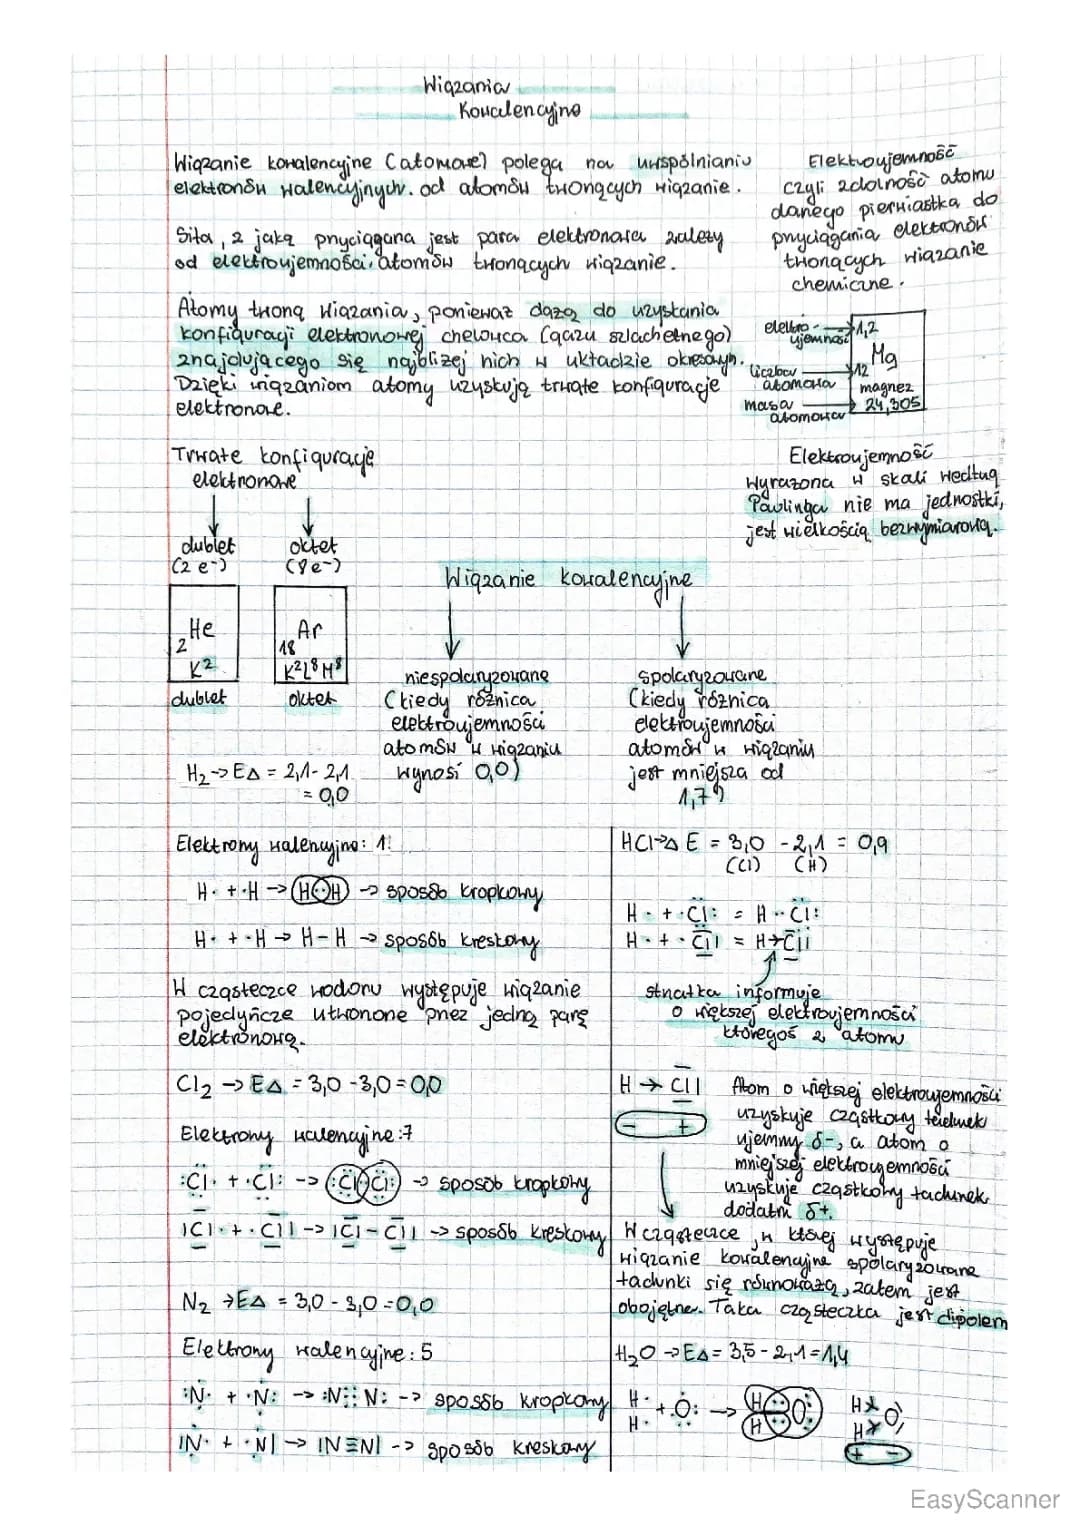 Wiązania
Kowalencyjne
Wiązanie kowalencyjne (atomowe) polega na uwspólnianiu
elektronów walencyjnych od atomów tworzących wiązanie.
Siła, z jaką przyciągana jest para elektronowa zależy
od elektroujemności atomów tworzących wiązanie.
Atomy tworzą wiązania, ponieważ dążą do uzyskania
konfiguracji elektronowej helowca (gazu szlachetnego)
znajdującego się najbliżej nich w układzie okresowym.
Dzięki wiązaniom atomy uzyskują trwałe konfiguracje
elektronowe.
Elektroujemność
czyli zdolność atomu
danego pierwiastka do
przyciągania elektronów
tworzących wiązanie
chemiczne.
elektro-
ujemność → 1,2
Mg
liczba
atomowa → 12
magnez
masa
atomowa → 24,305
Elektroujemność
wyrażona w skali według
Paulinga nie ma jednostki,
jest wielkością bezwymiarową.
Trwałe konfiguracje
elektronowe
dublet
(2 e-)
oktet
(8 e-)
2 He
K²
dublet
18 Ar
K²L⁸M⁸
oktet
Wiązanie kowalencyjne
niespolaryzowane
(kiedy różnica
elektroujemności
atomów w wiązaniu
wynosi 0,0)
spolaryzowane
(kiedy różnica
elektroujemności
atomów w wiązaniu
jest mniejsza od
1,7)
H₂ → EΔ = 2,1 - 2,1
= 0,0
Elektrony walencyjne: 1
H· + ·H → H:H → sposób kropkowy
H· + ·H → H-H → sposób kreskowy
W cząsteczce wodoru występuje wiązanie
pojedyńcze utworzone przez jedną parę
elektronową.
Cl₂ → EΔ = 3,0 - 3,0 = 0,0
Elektrony walencyjne: 7
:C̈l· + ·C̈l: -> :C̈l:C̈l: → sposób kropkowy
|Cl· + ·Cl| -> |Cl-Cl| -> sposób kreskowy
N₂ → EΔ = 3,0 - 3,0 = 0,0
Elektrony walencyjne: 5
:N· + ·N: -> :N⋮⋮N: -> sposób kropkowy
|N· + ·N| -> |N≡N| -> sposób kreskowy
HCl → Δ E = 3,0 - 2,1 = 0,9
(Cl) (H)
H· + ·C̈l: = H··C̈l:
H· + ·Cl| = H→Cl|
strzałka informuje
o większej elektroujemności
któregoś z atomu
H → Cl|
- +
Atom o większej elektroujemności
uzyskuje cząstkowy ładunek
ujemny δ-, a atom o
mniejszej elektroujemności
uzyskuje cząstkowy ładunek
dodatni δ+.
W cząsteczce, w której występuje
wiązanie kowalencyjne spolaryzowane
ładunki się równoważą, zatem jest
obojętne. Taka cząsteczka jest dipolem
H₂O → EΔ = 3,5 - 2,1 = 1,4
H·
H· + ·Ö: → H H O
H
H O
+ -
EasyScanner